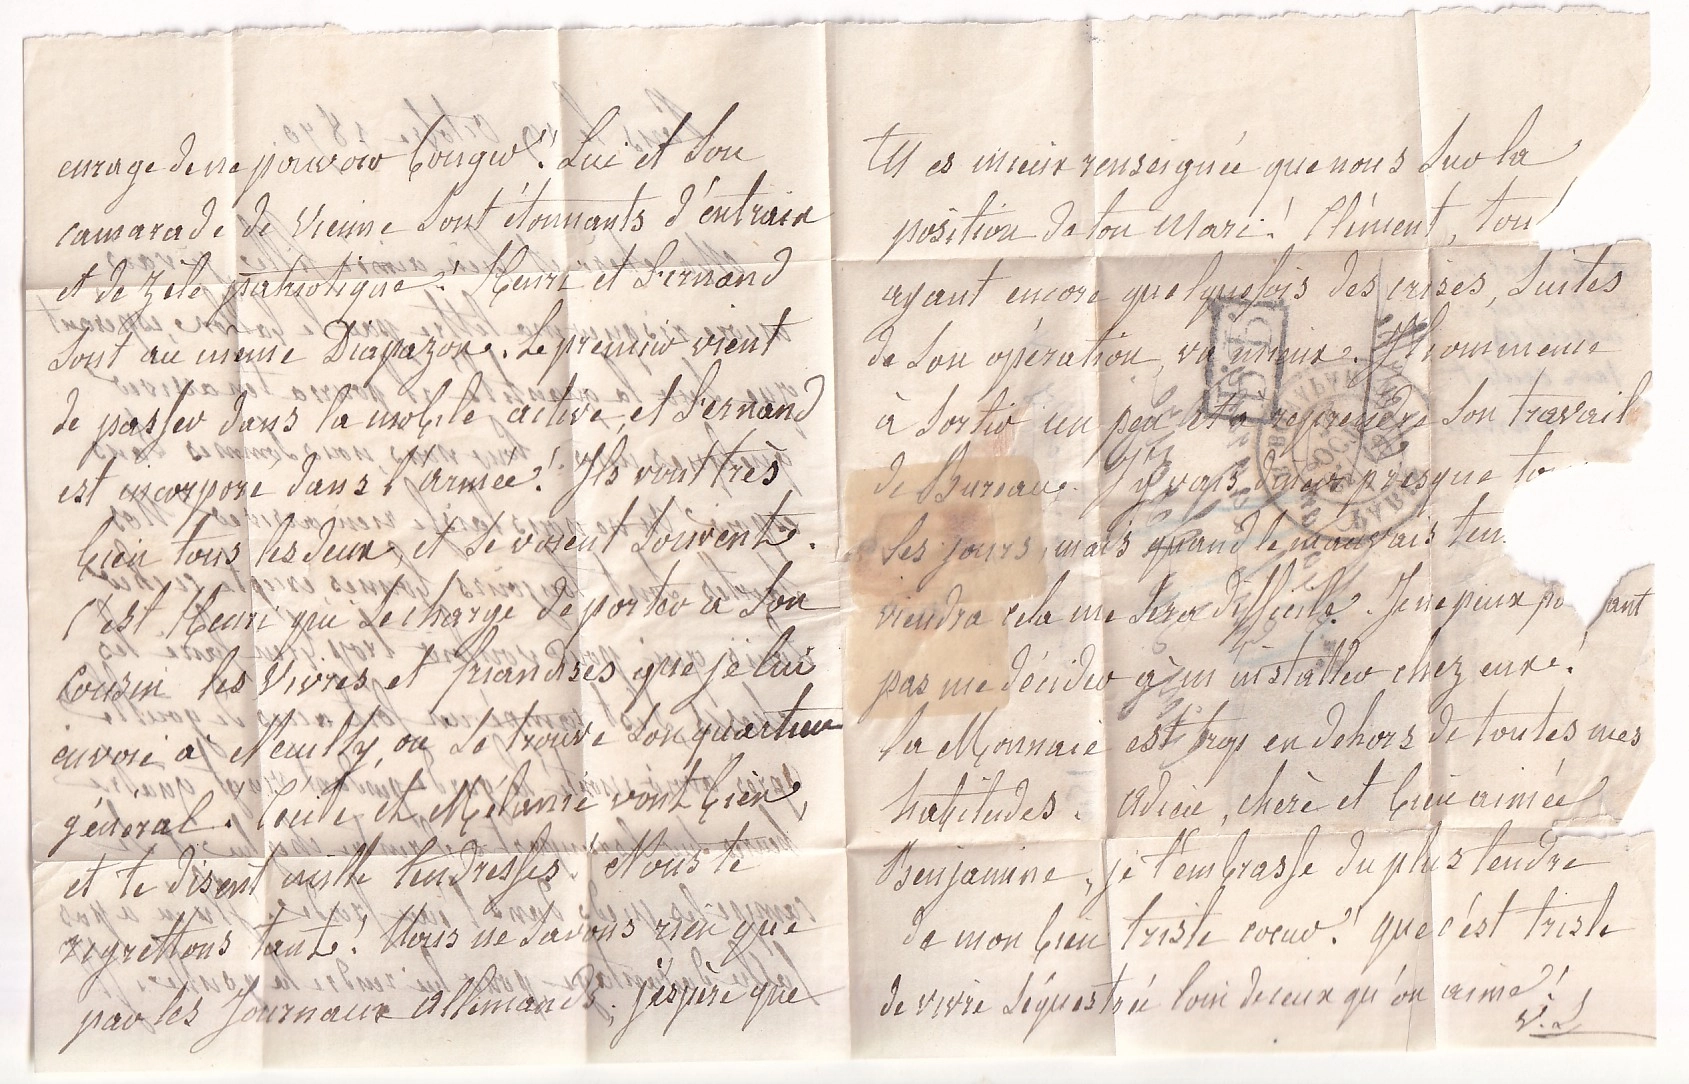 enrage de ne pouvoir bouger! Lui et son
camarade de Vienne sont étonnants d'entrain
et de zèle patriotique! Henri et Fernand
sont au meme Diapazone. Le premier vient
de passer dans la mobile active, et Fernand
est incorporé dans l'armée! Ils vont très
bien tous les deux, et se voient souvent.
C'est Henri qui se charge de porter à son
Cousin les vivres et friandises que je lui
envoie à Neuilly, ou se trouve son quartier
général. Cécile et Mélanie vont bien,
et te disent mille tendresses! Nous te
regrettons tant! Nous ne savons rien que
par les Journaux allemands; j'espère que
Tu es mieux renseignée que nous sur la
position de ton Mari! Clément, tout
ayant encore quelquefois des crises, suites
de son opération, va mieux. Il commence
à sortir un peu et à reprendre son travail
de Bureau. J'y vais diner presque to
les jours, mais quand le mauvais tem
viendra cela me sera difficile. Je ne peux po ant
pas me décider à m'installer chez eux!
la Monnaie est trop en dehors de toutes mes
habitudes. Adieu, chère et bien aimée
Benjamine, je t'embrasse du plus tendre
de mon bien triste coeur! que c'est triste
de vivre séquestrée loin de ceux qu'on aime!
V. L